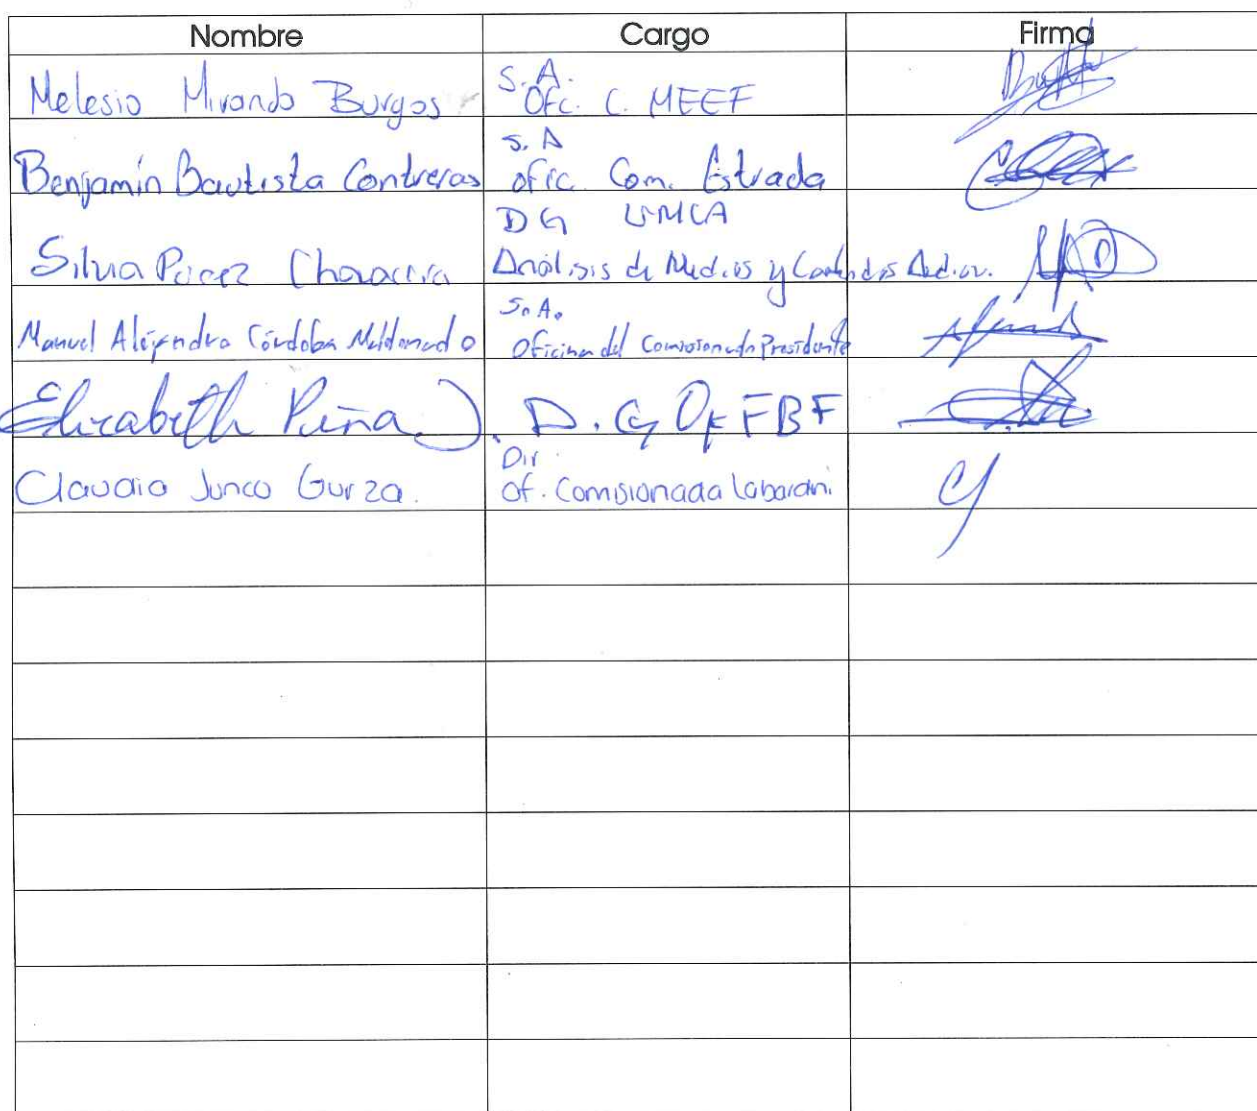 Nombre Cargo Firma
Melesio Miranda Burgos
S.A.
Ofc. C. MEEF
Benjamín Bautista Contreras
S.A
ofic. Com. Estrada
Silvia
DG UMCA
Análisis de Medios y Contenidos Audiov.
Manuel Alejandro Córdoba Maldonado
S.A.
Oficina del Comisionado Presidente
Elizabeth Piña J.
D.G Of FBF
Claudia Junco Gurza.
Dir
Of. Comisionada Labardini